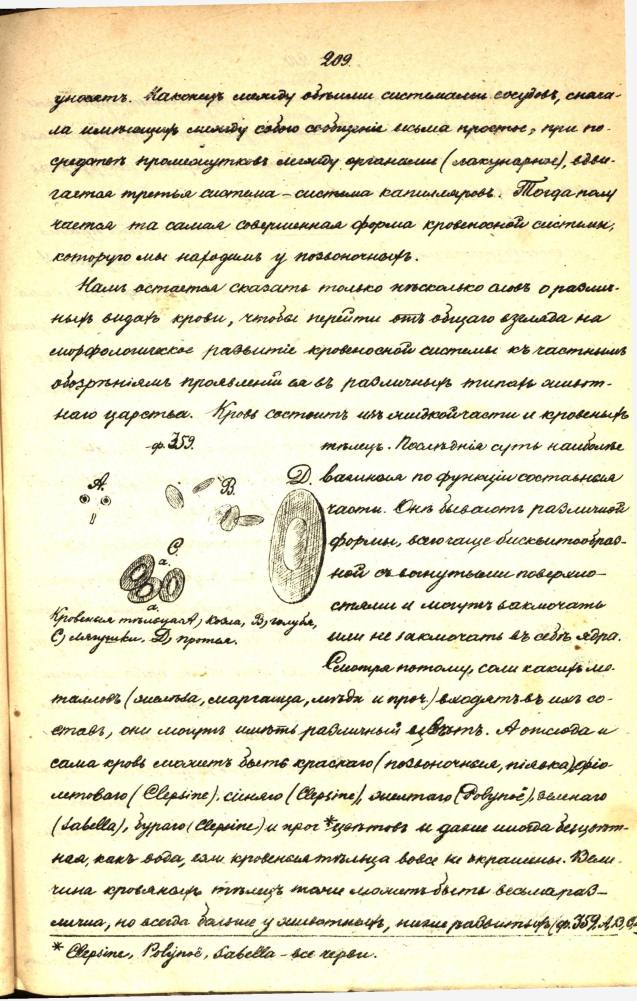 209.
уносятъ. Наконецъ между обѣими системами сосудовъ, снача-
ла имѣющихъ между собою сообщеніе весьма простое, при по-
средствѣ промежутковъ между органами (лакунарное), вдви-
гается третья система – система капилляровъ. Тогда полу
чается та самая совершенная форма кровеносной системы,
которую мы находимъ у позвоночныхъ.
Намъ остается сказать только нѣсколько словъ о различ-
ныхъ видахъ крови, чтобы перейти отъ общаго взгляда на
морфологическое развитіе кровеносной системы къ частнымъ
обозрѣніямъ проявленій ея въ различныхъ типахъ живот-
наго царства. Кровь состоитъ изъ жидкой части и кровеныхъ
ф. 359.
А.
В.
С.
а.
а.
D.
Кровеныя тѣльца А, козла, В, голубя,
С, лягушки. D, протея.
тѣлецъ. Послѣднія суть наиболѣе
важныя по функціи составныя
части. Онѣ бываютъ различной
формы, всего чаще бисквитообраз-
ной съ вогнутыми поверхно-
стями и могутъ заключать
или не заключать въ себѣ ядра.
Смотря потому, соли какихъ ме-
талловъ (желѣза, марганца, мѣди и проч.) входятъ въ ихъ со-
ставъ, они могутъ имѣть различный цвѣтъ. А отсюда и
сама кровь можетъ быть краснаго (позвоночныя, піявка), фіо-
летоваго (Clepsine), синяго (Clepsine), желтаго (Polynoë), зеленаго
(Sabella), бураго (Clepsine) и проч * цвѣтовъ и даже иногда безцвѣт-
ная, какъ вода, если кровеныя тѣльца вовсе не окрашены. Вели-
чина кровяныхъ тѣлецъ тоже можетъ быть весьма раз-
лична, но всегда больше у животныхъ, ниже развитыхъ (ф. 359, А, В, С,
* Clepsine, Polynoë, Sabella – все черви.